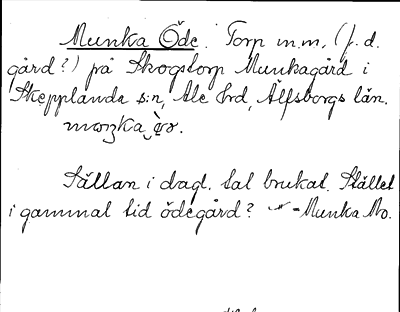 Munka Öde. Torp m.m. (f.d.
gård?) på Skogstorp Munkagård i
Skepplanda s:n, Ale hrd, Älfsborgs län.
Sällan i dagl. tal brukat. Stället
i gammal tid ödegård? = Munka Mo.